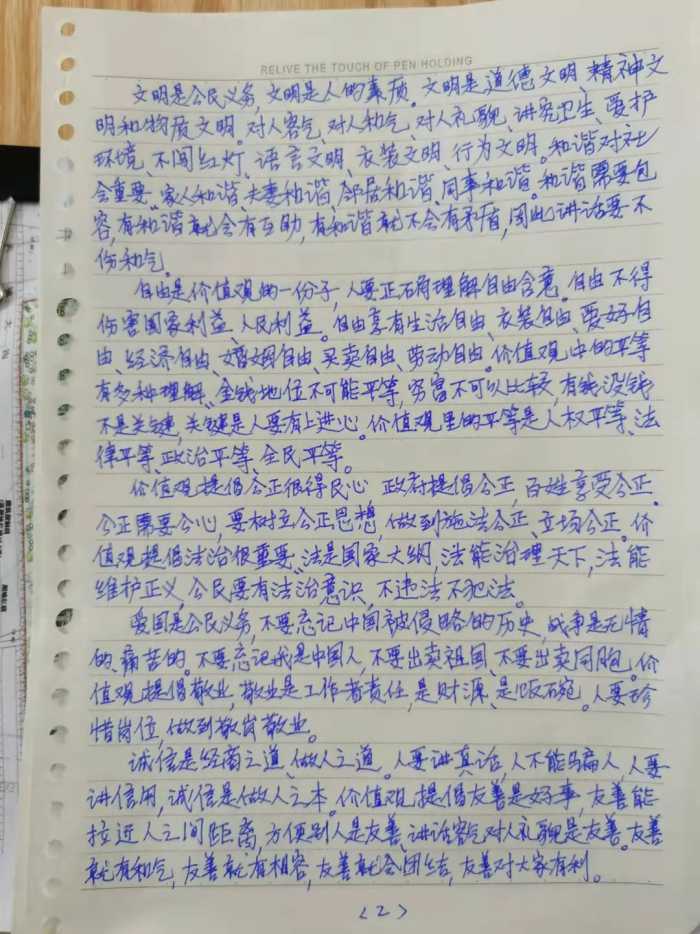 RELIVE THE TOUCH OF PEN HOLDING
文明是公民义务,文明是人的素质。文明是道德文明、精神文
明和物质文明。对人客气、对人和气、对人礼貌、讲究卫生、爱护
环境、不闯红灯、语言文明、衣装文明、行为文明。和谐对社
会重要、家人和谐、夫妻和谐、邻居和谐、同事和谐。和谐需要包
容,有和谐就会有互助,有和谐就不会有矛盾,因此讲话要不
伤和气。
自由是价值观的一份子,人要正确理解自由含意。自由不得
伤害国家利益、人民利益。自由享有生活自由、衣装自由、爱好自
由、经济自由、婚姻自由、买卖自由、劳动自由。价值观中的平等
有多种理解、金钱地位不可能平等,穷富不可以比较,有钱没钱
不是关键,关键是人要有上进心。价值观里的平等是人权平等、法
律平等、政治平等、全民平等。
价值观提倡公正很得民心,政府提倡公正,百姓享受公正。
公正需要公心,要树立公正思想,做到施法公正、立场公正。价
值观提倡法治很重要、法是国家大纲,法能治理天下,法能
维护正义,公民要有法治意识,不违法不犯法。
爱国是公民义务,不要忘记中国被侵略的历史,战争是无情
的、痛苦的。不要忘记我是中国人,不要出卖祖国、不要出卖同胞。价
值观提倡敬业,敬业是工作者责任,是财源、是饭碗。人要珍
惜岗位,做到敬岗敬业。
诚信是经商之道、做人之道。人要讲真话,人不能骗人,人要
讲信用,诚信是做人之本。价值观提倡友善是好事,友善能
拉近人之间距离,方便别人是友善、讲话客气对人礼貌是友善。友善
就有和气,友善就有相容,友善就会团结,友善对大家有利。
<2>